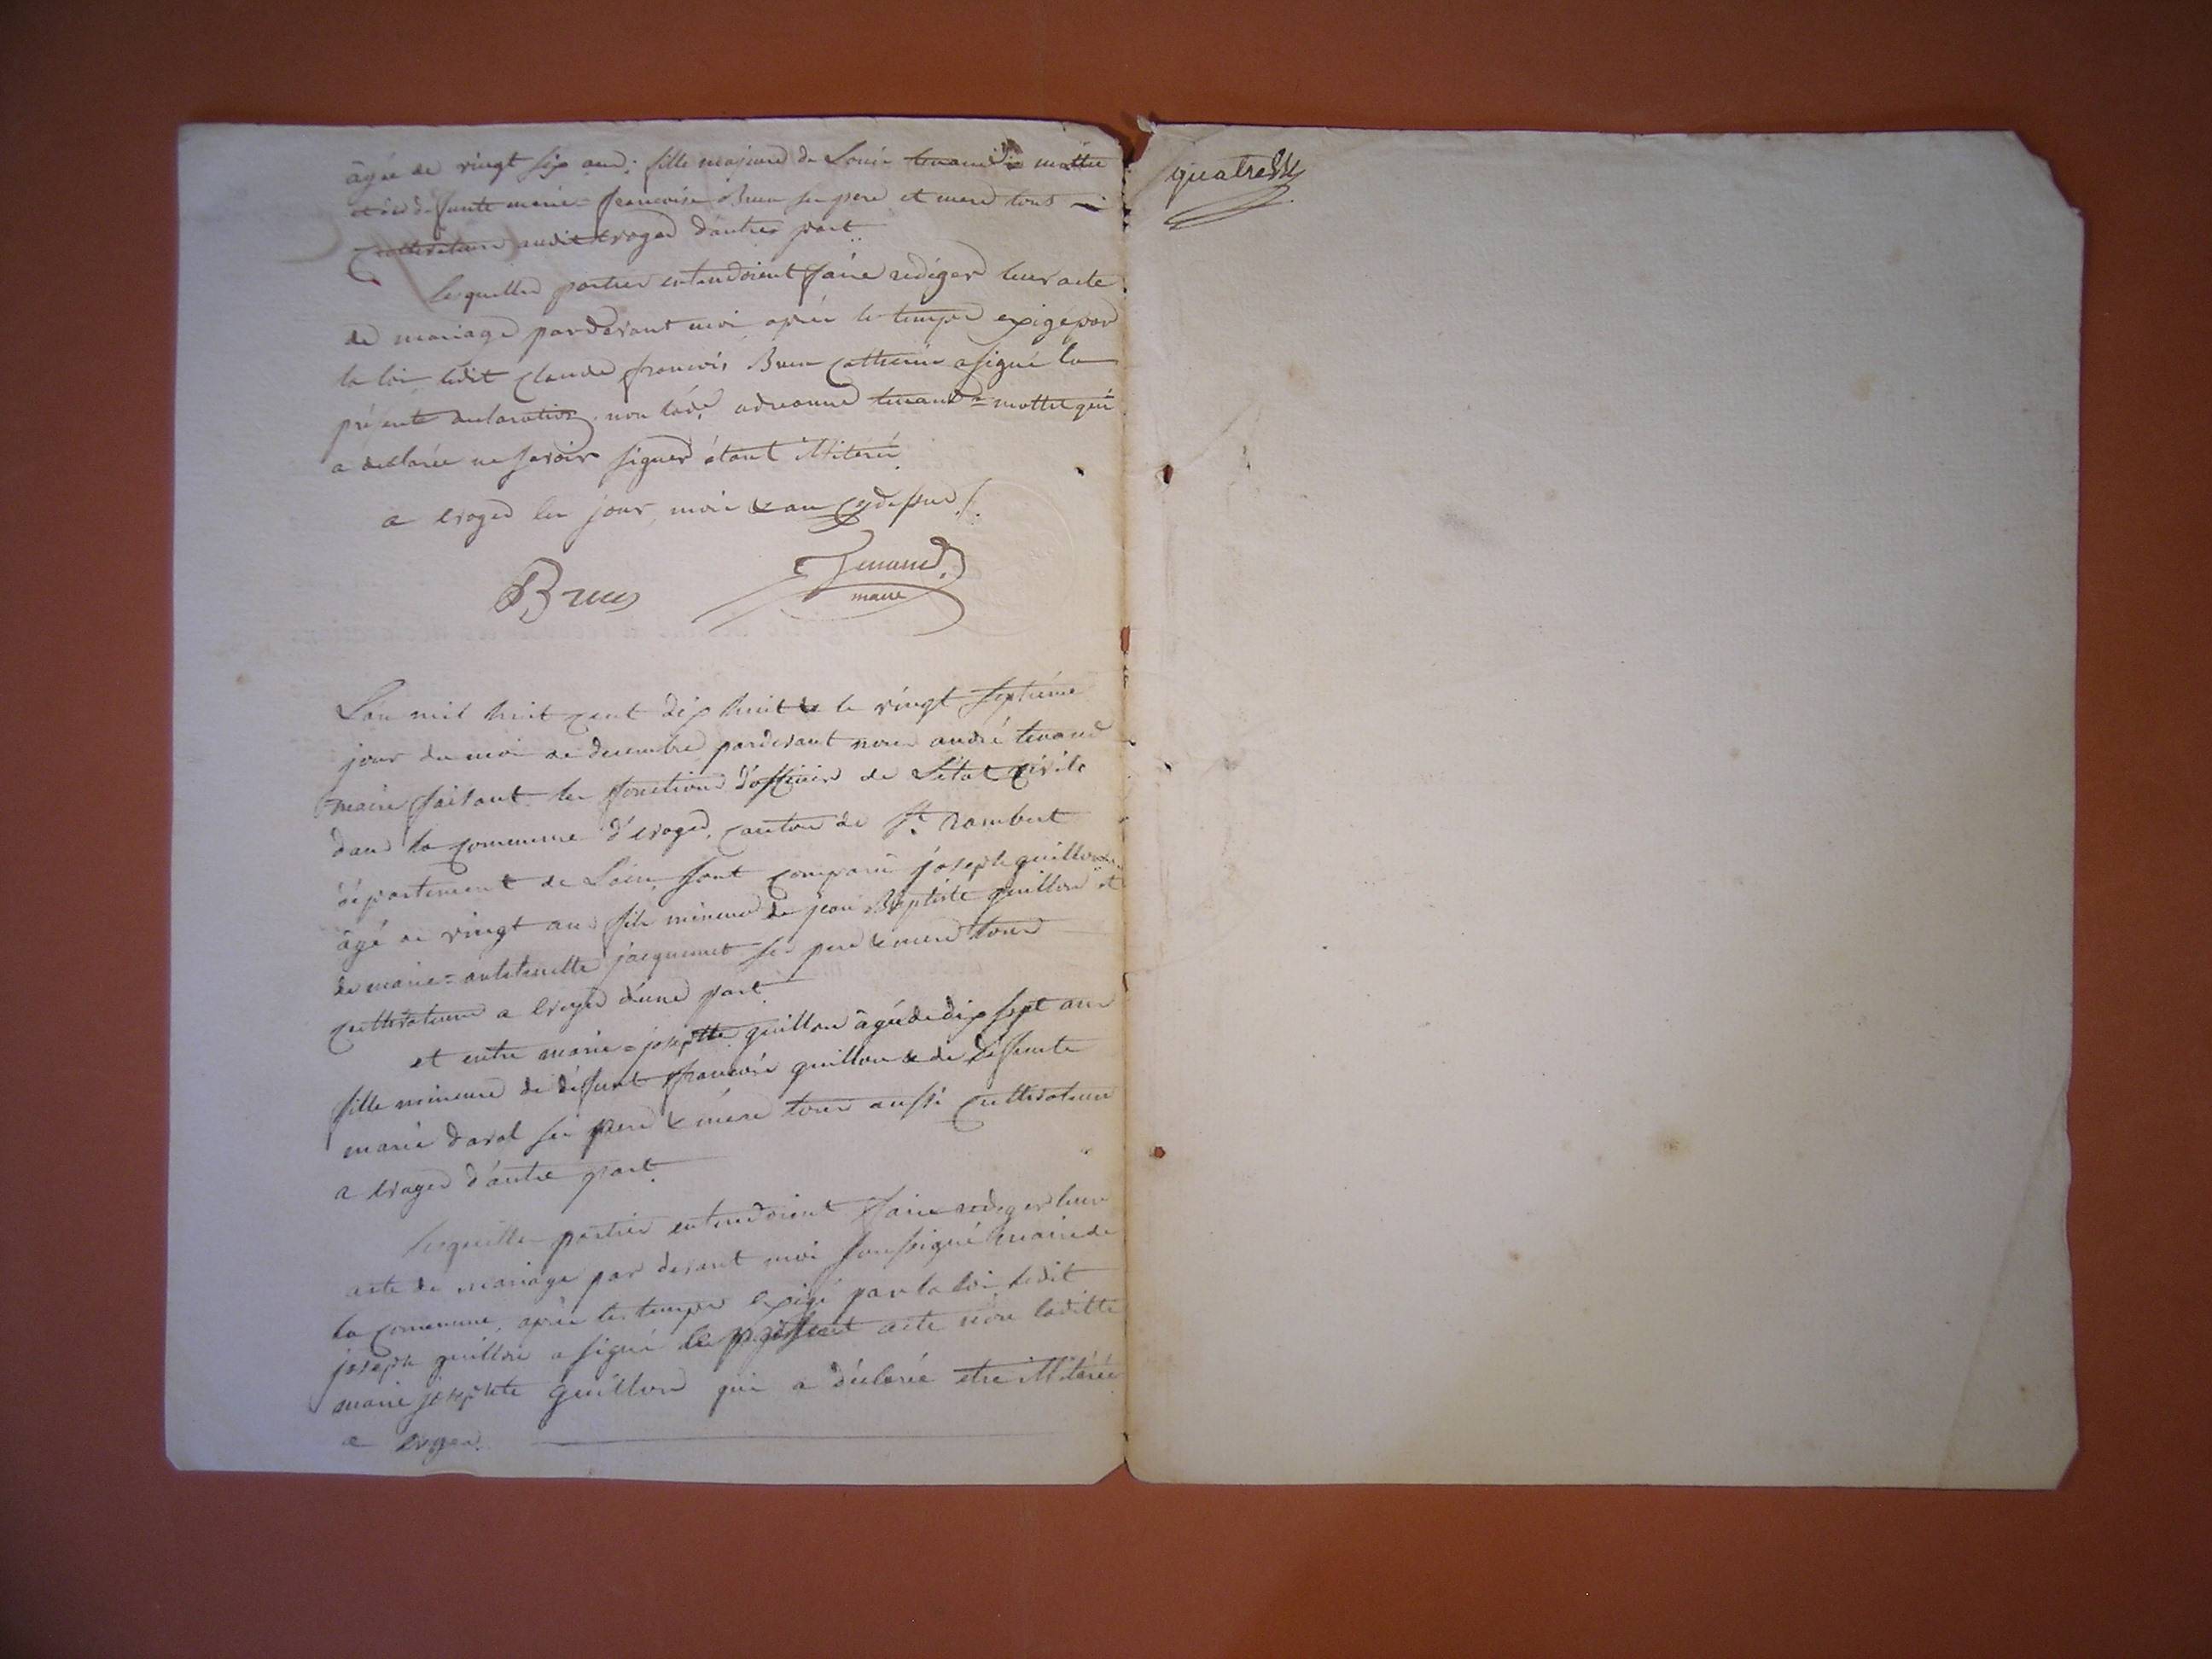 âgée de vingt six ans; fille majeure de Louis tenand = mottet
et de deffunte marie = francoise Brun ses pere et mere tous
Cultivateurs audit Evoges d'autres part
Lesquelles parties entendoient faire rediger leur acte
de mariage pardevant moi après le temps exigé par
la loi ledit Claude francois Brun Catherin a signé la
présente declaration, non lad.e tenand = mottet qui
a declarée ne savoir signer étant illitérée
a Evoges les jour, mois & an Cydessus ./.
Brun
Tenand
maire
L'an mil huit cent dix huit & le vingt septième
jour du moi de decembre pardevant nous andré tenand
maire faisant les fonctions d'officier de L'état Civile
dans la Commune d'Evoges, Canton de St. rambert
département de L'ain, sont comparu joseph guillon
âgé de vingt ans fils mineur de jean Baptiste guillon et
de marie = antoinette jacquemet ses pere & mere tous
Cultivateurs a Evoges d'une part
et entre marie = josephte guillon âgée de dix sept ans
fille mineure de deffunt francois guillon & de deffunte
marie Daval ses pere & mere tous aussi Cultivateurs
a Evoges d'autre part
Lesquelles parties entendoient faire rediger leur
acte de mariage par devant moi soussigné maire de
la Commune, après les temps exigé par la loi, ledit
joseph guillon a signé le présent acte non laditte
marie josephte guillon qui a déclarée etre illitérée
a Evoges
quatre